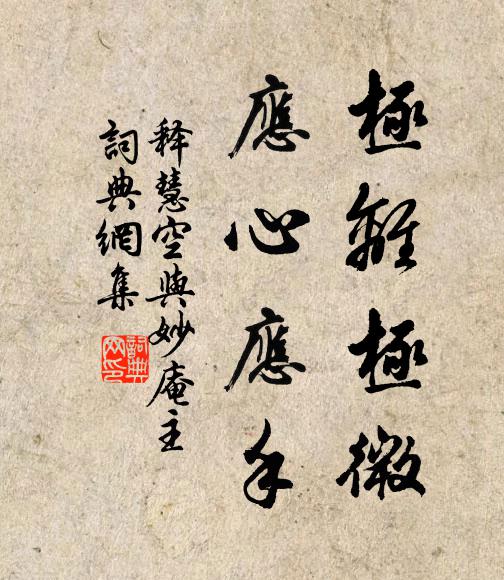 極離極微
應心應手
释慧空與妙庵主
詞典網集
詞典
网印